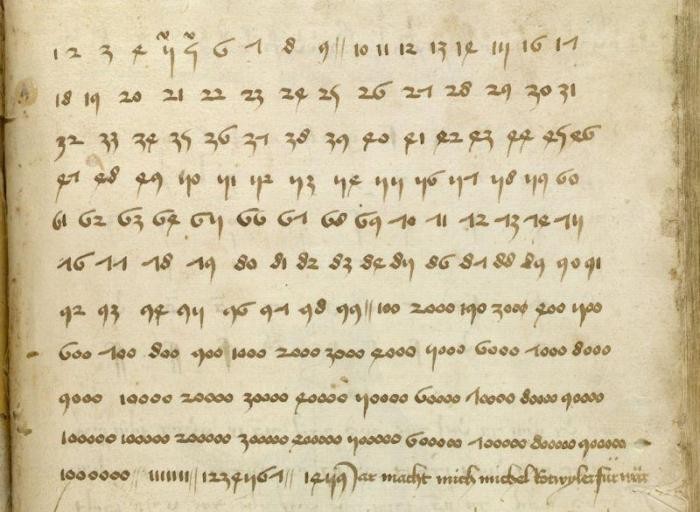 1 2 3 4 5 5 6 7 8 9 // 10 11 12 13 14 15 16 17
18 19 20 21 22 23 24 25 26 27 28 29 30 31
32 33 34 35 36 37 38 39 40 41 42 43 44 45 46
47 48 49 50 51 52 53 54 55 56 57 58 59 60
61 62 63 64 65 66 67 68 69 70 71 72 73 74 75
76 77 78 79 80 81 82 83 84 85 86 87 88 89 90 91
92 93 94 95 96 97 98 99 // 100 2000 190 3000 400 500
600 700 800 900 1000 2000 3000 4000 5000 6000 7000 8000
9000 10000 20000 30000 40000 50000 60000 70000 80000 90000
100000 100000 200000 300000 400000 500000 600000 700000 800000 900000
1000000 // // 1234567 // 1459 Jar macht mich michel kotwyler für war